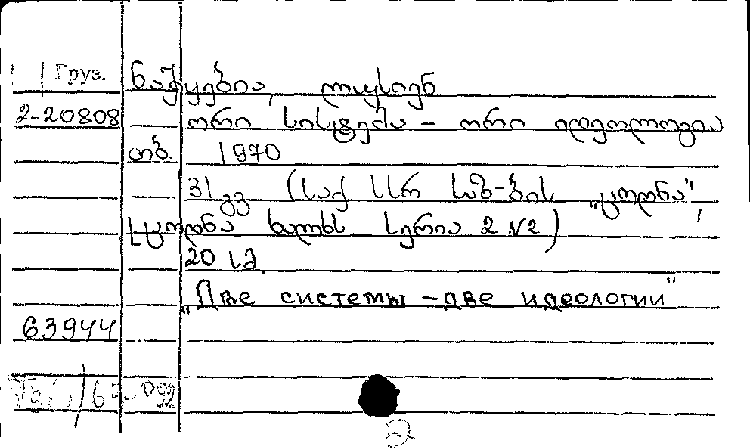 Груз. ნაჭყებია, ლუსიენ
2-20808 ორი სისტემა - ორი იდეოლოგია
თბ. 1970
31 გვ (საქ სსრ საზ-ბის „ცოდნა",
სცოდნა ხალხს სერია 2 №2)
20 სმ.
„Две системы - две идеологии"
63944